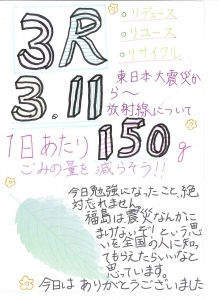 3R
・リデュース
・リユース
・リサイクル
3.11
東日本大震災から〜
放射線について
1日あたり150g
ごみの量を減らそう!!
今日勉強になったこと、絶
対忘れません。
福島は、震災なんかに
まけないぞ!という思い
を全国の人に知っ
てもらえたらいいなと
思っています。
今日はありがとうございました